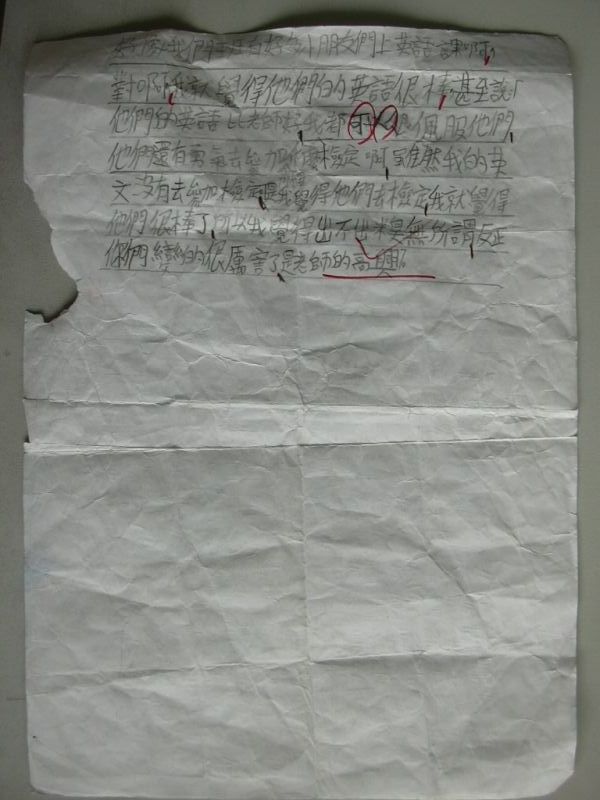 我們 有好多小朋友們上英語課啊,
對啊,我就覺得他們的英語很棒,甚至說
他們的英語比老師好,我都 很佩服他們,
他們還有勇氣去參加 檢定啊,雖然我的英
文沒有去參加檢定,是我覺得他們去檢定,我就覺得
他們很棒了,所以我覺得出不出來是無所謂,反正
你們變的很厲害了,是老師的高興。